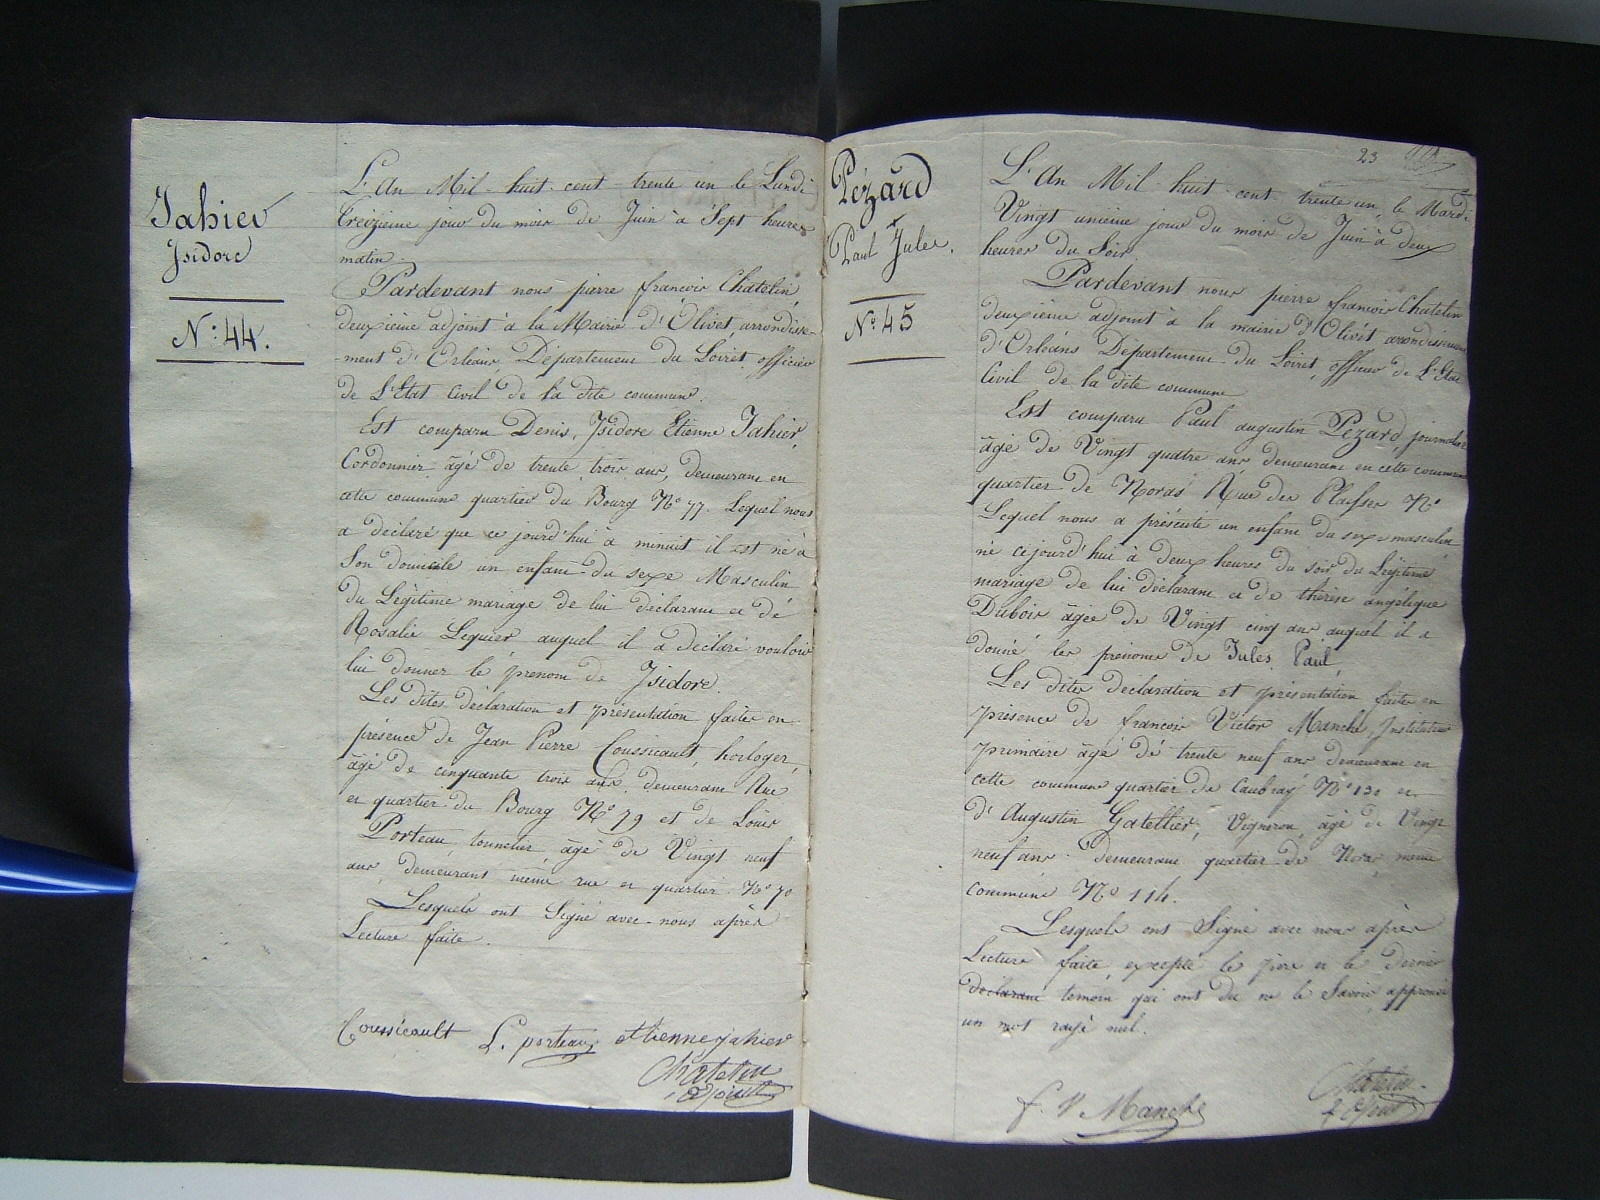 Jahier
Isidore
N°. 44.
L'An Mil-huit-cent-trente un le Lundi
treizieme jour du mois de Juin à Sept heures
matin.
Pardevant nous pierre françois Chatelin,
deuxieme adjoint à la Mairie d'Olivet, arrondisse-
-ment d'Orléans, Département du Loiret, officier
de L'Etat Civil de la dite commune.
Est comparu Denis, Isidore Etienne Jahier,
Cordonnier âgé de trente trois ans, demeurant en
cette commune quartier du Bourg N° 77. Lequel nous
a déclaré que ce jourd'hui à minuit il est né à
Son domicile un enfant du sexe Masculin
du Légitime mariage de lui déclarant et de
Rosalie Lequier auquel il a déclaré vouloir
lui donner le prenom de Isidore.
Les dites déclaration et présentation faites en
présence de Jean Pierre Coussicault, horloger,
âgé de cinquante trois ans, demeurant Rue
et quartier du Bourg N° 79 et de Louis
Porteau, tonnelier, âgé de Vingt neuf
ans, demeurant même rue et quartier N° 70
Lesquels ont Signé avec nous après
Lecture faite.
Coussicault L. porteau ettienne jahier
Chatelin
adjoint
23
Pézard
Paul Jules.
N° 45
L'An Mil-huit-cent-trente un, le Mardi
Vingt unieme jour du mois de Juin à deux
heures du Soir.
Pardevant nous pierre françois Chatelin
deuxieme adjoint à la mairie d'Olivet arrondissement
d'Orléans Département du Loiret, officier de L'Etat
Civil de la dite commune
Est comparu Paul augustin Pézard, journalier
âgé de Vingt quatre ans demeurant en cette commune
quartier de Noras Rue des N°
Lequel nous a présenté un enfant du sexe masculin
né cejourd'hui à deux heures du soir du Légitime
mariage de lui déclarant et de thérèse angélique
Dubois âgée de Vingt cinq ans auquel il a
donné les prénoms de Jules Paul
Les dites déclaration et présentation faite en
présence de françois Victor Manche, Instituteur
primaire âgé de trente neuf ans demeurant en
cette commune quartier de Caubray N° 130 et
d'Augustin Gatellier, Vigneron, âgé de Vingt
neuf ans. Demeurant quartier de Noras même
commune N° 114.
Lesquels ont Signé avec nous après
Lecture faite, excepté le père et le dernier
déclarant temoin qui ont dit ne le Savoir approuvé
un mot rayé nul.
f. V Manche
Chatelin
adjoint